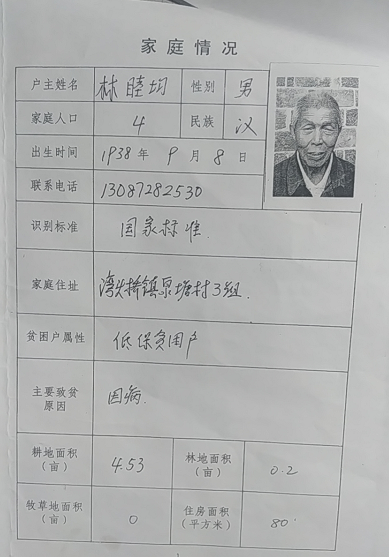 家庭情况
户主姓名 林睦均 性别 男
家庭人口 4 民族 汉
出生时间 1938年9月8日
联系电话 13087282530
识别标准 国家标准.
家庭住址 湾头桥镇泉塘村3组.
贫困户属性 低保贫困户
主要致贫
原因 因病.
耕地面积
(亩) 4.53 林地面积
(亩) 0.2
牧草地面积
(亩) 0 住房面积
(平方米) 80